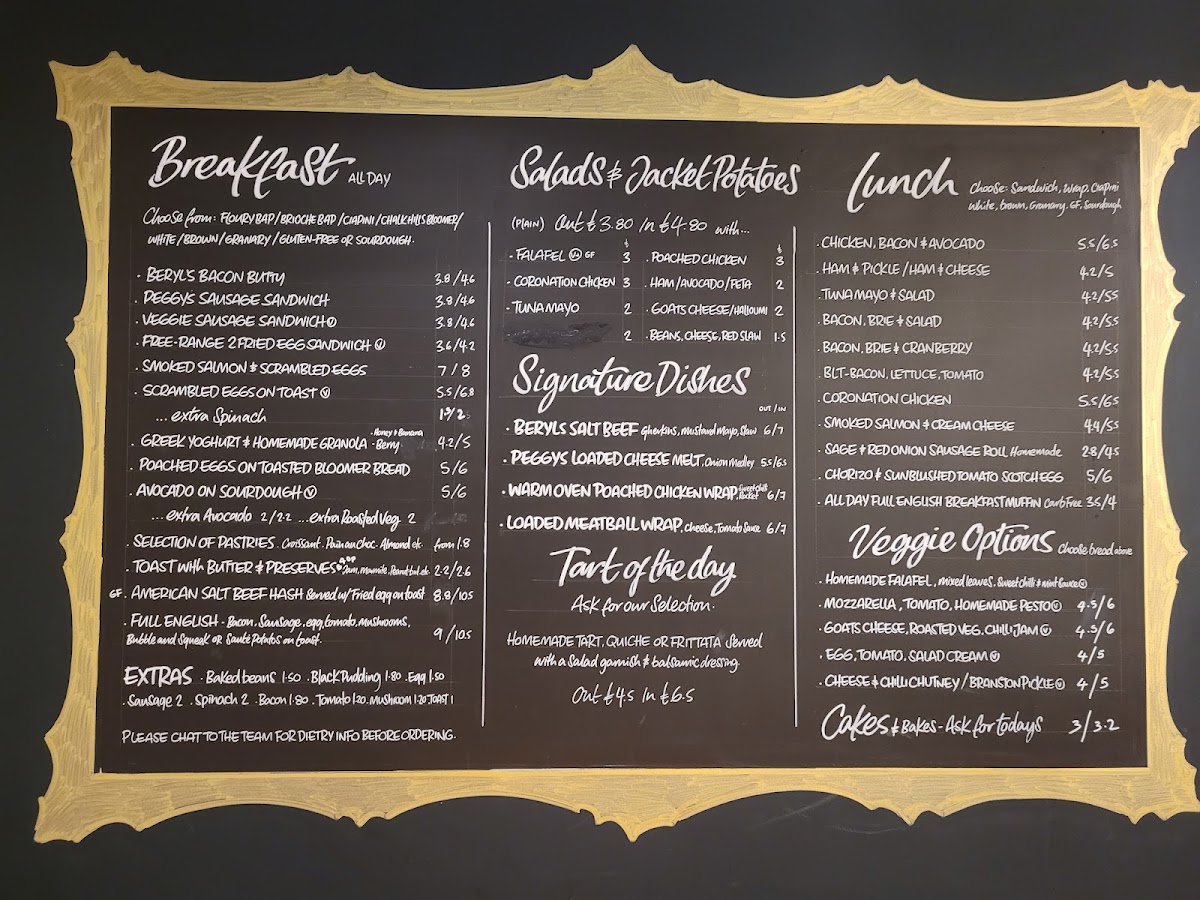 Breakfast ALL DAY
Choose from: FLOURY BAP / BRIOCHE BAP / CIAPINI / CHALK HILLS BLOOMER /
WHITE / BROWN / GRANARY / GLUTEN-FREE OR SOURDOUGH.
· BERYL'S BACON BUTTY 3.8/4.6
· PEGGYS SAUSAGE SANDWICH 3.8/4.6
· VEGGIE SAUSAGE SANDWICH Ⓥ 3.8/4.6
· FREE-RANGE 2 FRIED EGG SANDWICH Ⓥ 3.6/4.2
· SMOKED SALMON & SCRAMBLED EGGS 7/8
· SCRAMBLED EGGS ON TOAST Ⓥ 5.5/6.8
... extra Spinach 1.9/2
· GREEK YOGHURT & HOMEMADE GRANOLA · Honey & Banana · Berry 4.2/5
· POACHED EGGS ON TOASTED BLOOMER BREAD 5/6
· AVOCADO ON SOURDOUGH Ⓥ 5/6
... extra Avocado 2/2.2 ... extra Roasted Veg 2
· SELECTION OF PASTRIES . Croissant . Pain au choc . Almond etc. from 1.8
· TOAST with BUTTER & PRESERVES Jam, marmite, Peanut but. etc 2.2/2.6
GF · AMERICAN SALT BEEF HASH Served w/ Fried egg on toast 8.9/10.5
· FULL ENGLISH - Bacon, Sausage, egg, tomato, mushrooms,
Bubble and Squeak or Sauté Potatos on toast. 9/10.5
EXTRAS · Baked beans 1.50 · Black Pudding 1.80 · Egg 1.50
· Sausage 2 · Spinach 2 · Bacon 1.80 · Tomato 1.20 · Mushroom 1.20 · TOAST 1
PLEASE CHAT TO THE TEAM FOR DIETRY INFO BEFORE ORDERING.
Salads & Jacket Potatoes
(PLAIN) Out £3.80 In £4.80 with...
£ £
· FALAFEL GF 3
· CORONATION CHICKEN 3
· TUNA MAYO 2
2
· POACHED CHICKEN 3
· HAM/AVOCADO/FETA 2
· GOATS CHEESE/HALLOUMI 2
· BEANS, CHEESE, RED SLAW 1.5
Signature Dishes
OUT / IN
· BERYLS SALT BEEF Gherkins, mustard mayo, Slaw 6/7
· PEGGYS LOADED CHEESE MELT, Onion medley 5.5/6.5
· WARM OVEN POACHED CHICKEN WRAP, Sweet chilli Rocket 6/7
· LOADED MEATBALL WRAP, Cheese, Tomato Sauce 6/7
Tart of the day
Ask for our Selection.
HOMEMADE TART, QUICHE OR FRITTATA Served
with a Salad garnish & balsamic dressing.
Out £4.5 In £6.5
Lunch Choose: Sandwich, Wrap, Ciapini
White, brown, Granary, GF, Sourdough
· CHICKEN, BACON & AVOCADO 5.5/6.5
· HAM & PICKLE / HAM & CHEESE 4.2/5
· TUNA MAYO & SALAD 4.2/5.5
· BACON, BRIE & SALAD 4.2/5.5
· BACON, BRIE & CRANBERRY 4.2/5.5
· BLT - BACON, LETTUCE, TOMATO 4.2/5.5
· CORONATION CHICKEN 5.5/6.5
· SMOKED SALMON & CREAM CHEESE 4.4/5.5
· SAGE & RED ONION SAUSAGE ROLL Homemade 2.8/4.5
· CHORIZO & SUNBLUSHED TOMATO SCOTCH EGG 5/6
· ALL DAY FULL ENGLISH BREAKFAST MUFFIN Carb Free 3.5/4
Veggie Options Choose bread above
· HOMEMADE FALAFEL, mixed leaves, Sweet chilli & mint Sauce Ⓥ
· MOZZARELLA, TOMATO, HOMEMADE PESTO Ⓥ 4.5/6
· GOATS CHEESE, ROASTED VEG, CHILLI JAM Ⓥ 4.5/6
· EGG, TOMATO, SALAD CREAM Ⓥ 4/5
· CHEESE & CHILLI CHUTNEY / BRANSTON PICKLE Ⓥ 4/5
Cakes & Bakes - Ask for todays 3/3.2